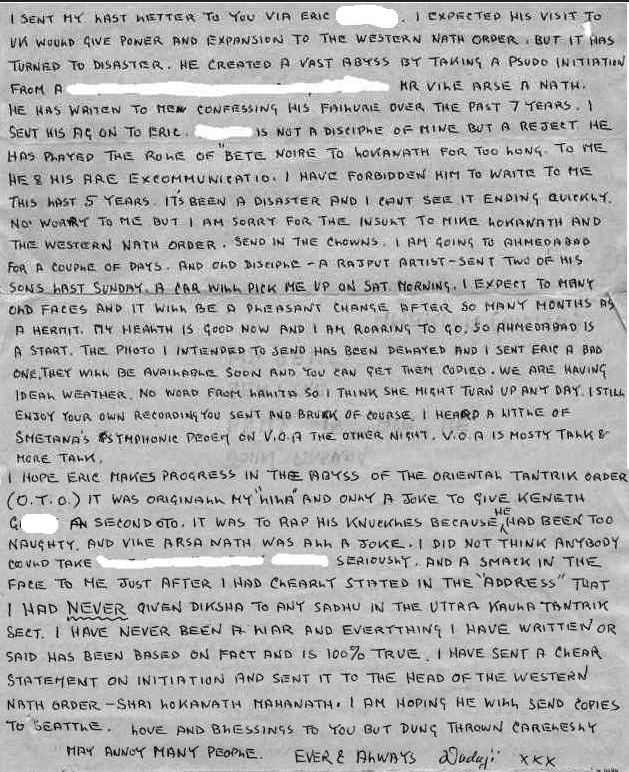 I SENT MY LAST LETTER TO YOU VIA ERIC . I EXPECTED HIS VISIT TO
UK WOULD GIVE POWER AND EXPANSION TO THE WESTERN NATH ORDER. BUT IT HAS
TURNED TO DISASTER. HE CREATED A VAST ABYSS BY TAKING A PSUDO INITIATION
FROM A MR VILE ARSE A NATH.
HE HAS WRITEN TO ME CONFESSING HIS FAILURE OVER THE PAST 7 YEARS. I
SENT HIS AG ON TO ERIC. IS NOT A DISCIPLE OF MINE BUT A REJECT. HE
HAS PLAYED THE ROLE OF "BETE NOIRE TO LOKANATH FOR TOO LONG. TO ME
HE & HIS ARE EXCOMMUNICATIO. I HAVE FORBIDDEN HIM TO WRITE TO ME
THIS LAST 5 YEARS. IT'S BEEN A DISASTER AND I CANT SEE IT ENDING QUICKLY.
NO WORRY TO ME BUT I AM SORRY FOR THE INSULT TO MIKE LOKANATH AND
THE WESTERN NATH ORDER. SEND IN THE CLOWNS. I AM GOING TO AHMEDABAD
FOR A COUPLE OF DAYS. AND OLD DISCIPLE - A RAJPUT ARTIST - SENT TWO OF HIS
SONS LAST SUNDAY. A CAR WILL PICK ME UP ON SAT. MORNING. I EXPECT TO MANY
OLD FACES AND IT WILL BE A PLEASANT CHANGE AFTER SO MANY MONTHS AS
A HERMIT. MY HEALTH IS GOOD NOW AND I AM ROARING TO GO. SO AHMEDABAD IS
A START. THE PHOTO I INTENDED TO SEND HAS BEEN DELAYED AND I SENT ERIC A BAD
ONE. THEY WILL BE AVAILABLE SOON AND YOU CAN GET THEM COPIED. WE ARE HAVING
IDEAL WEATHER. NO WORD FROM LALITA SO I THINK SHE MIGHT TURN UP ANY DAY. I STILL
ENJOY YOUR OWN RECORDING YOU SENT AND BRUKH OF COURSE. I HEARD A LITTLE OF
SMETANA'S SYMPHONIC POEM ON V.O.A THE OTHER NIGHT. V.O.A IS MOSTY TALK &
MORE TALK.
I HOPE ERIC MAKES PROGRESS IN THE ABYSS OF THE ORIENTAL TANTRIK ORDER
(O.T.O.) IT WAS ORIGINALL MY "LILA" AND ONLY A JOKE TO GIVE KENETH
G AN SECOND OTO. IT WAS TO RAP HIS KNUCKLES BECAUSE HE HAD BEEN TOO
NAUGHTY. AND VILE ARSA NATH WAS ALL A JOKE. I DID NOT THINK ANYBODY
COULD TAKE SERIOUSLY. AND A SMACK IN THE
FACE TO ME JUST AFTER I HAD CLEARLY STATED IN THE "ADDRESS" THAT
I HAD NEVER GIVEN DIKSHA TO ANY SADHU IN THE UTTRA KAULA TANTRIK
SECT. I HAVE NEVER BEEN A LIAR AND EVERYTHING I HAVE WRITTEN OR
SAID HAS BEEN BASED ON FACT AND IS 100% TRUE. I HAVE SENT A CLEAR
STATEMENT ON INITIATION AND SENT IT TO THE HEAD OF THE WESTERN
NATH ORDER - SHRI LOKANATH MAHANATH. I AM HOPING HE WILL SEND COPIES
TO SEATTLE. LOVE AND BLESSINGS TO YOU BUT DUNG THROWN CARELESLY
MAY ANNOY MANY PEOPLE. EVER & ALWAYS Dadaji XXX